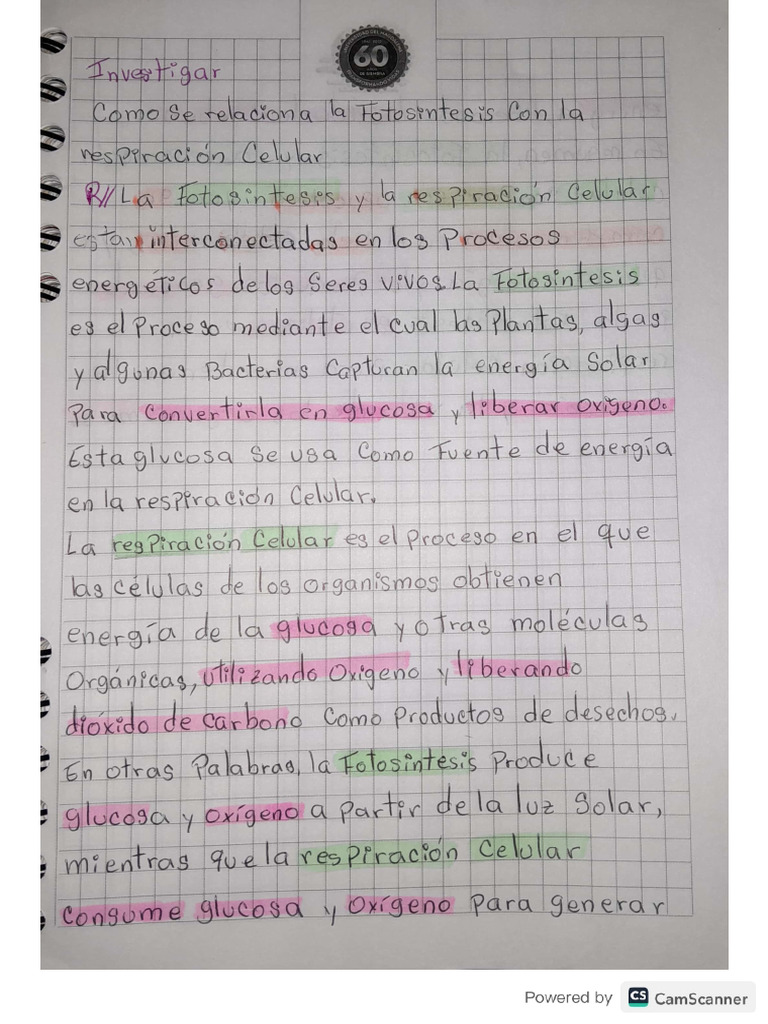 60
Investigar
Como se relaciona la Fotosintesis con la
respiración Celular
R// La Fotosintesis y la respiración Celular
estan interconectadas en los Procesos
energéticos de los Seres vivos. La Fotosintesis
es el Proceso mediante el cual las Plantas, algas
y algunas Bacterias Capturan la energía Solar
Para Convertirla en glucosa y liberar oxigeno.
Esta glucosa se usa como Fuente de energía
en la respiración Celular.
La respiración Celular es el Proceso en el que
las células de los organismos obtienen
energía de la glucosa y otras moléculas
Orgánicas, utilizando Oxigeno y liberando
dióxido de carbono como Productos de desechos.
En otras Palabras, la Fotosintesis Produce
glucosa y oxígeno a Partir de la luz Solar,
mientras que la respiración Celular
Consume glucosa y Oxígeno Para generar
Powered by CS CamScanner